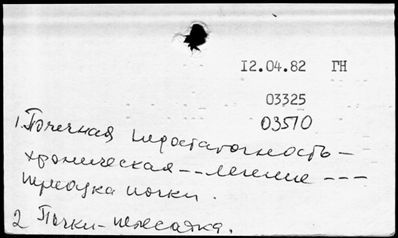 12.04.82 ГН
03325
03510
1. Почечная недостаточность –
хроническая -- лечение ---
пересадка почки.
2 Почки - пересадка.